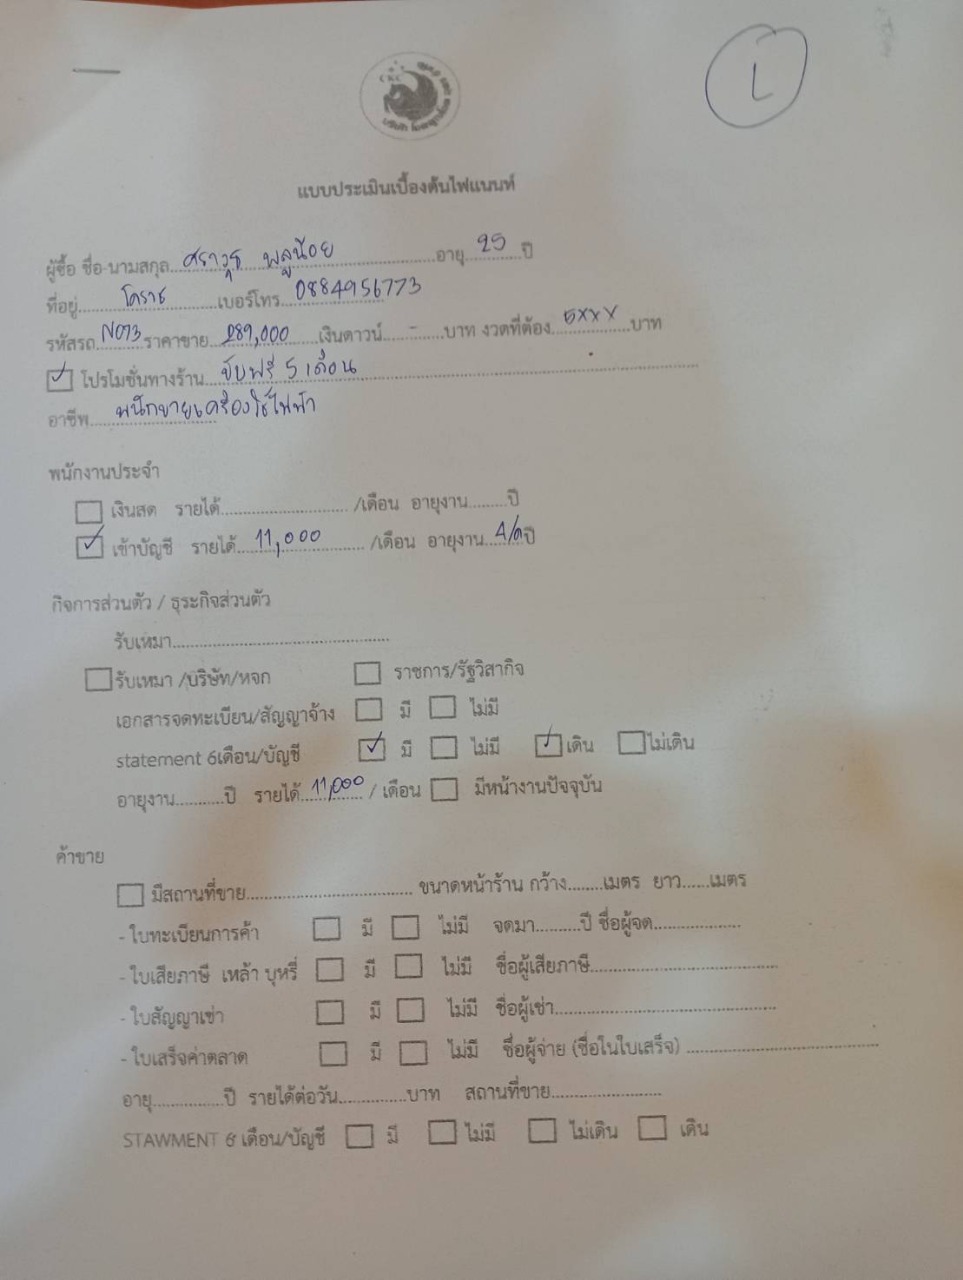 L
แบบประเมินเบื้องต้นไฟแนนท์
ผู้ซื้อ ชื่อ-นามสกุล ศราวุธ พลูน้อย อายุ 25 ปี
ที่อยู่ โคราช เบอร์โทร 0884956773
รหัสรถ N073 ราคาขาย 289,000 เงินดาวน์ - บาท งวดที่ต้อง 5xxx บาท
โปรโมชั่นทางร้าน ขับฟรี 5 เดือน
อาชีพ พนักขายเครื่องใช้ไฟฟ้า
พนักงานประจำ
เงินสด รายได้ /เดือน อายุงาน ปี
เข้าบัญชี รายได้ 11,000 /เดือน อายุงาน ปี
กิจการส่วนตัว / ธุระกิจส่วนตัว
รับเหมา
รับเหมา /บริษัท/หจก ราชการ/รัฐวิสากิจ
เอกสารจดทะเบียน/สัญญาจ้าง มี ไม่มี
statement 6เดือน/บัญชี มี ไม่มี เดิน ไม่เดิน
อายุงาน ปี รายได้ 11,000 / เดือน มีหน้างานปัจจุบัน
ค้าขาย
มีสถานที่ขาย ขนาดหน้าร้าน กว้าง เมตร ยาว เมตร
- ใบทะเบียนการค้า มี ไม่มี จดมา ปี ชื่อผู้จด
- ใบเสียภาษี เหล้า บุหรี่ มี ไม่มี ชื่อผู้เสียภาษี
- ใบสัญญาเช่า มี ไม่มี ชื่อผู้เช่า
- ใบเสร็จค่าตลาด มี ไม่มี ชื่อผู้จ่าย (ชื่อในใบเสร็จ)
อายุ ปี รายได้ต่อวัน บาท สถานที่ขาย
STAWMENT 6 เดือน/บัญชี มี ไม่มี ไม่เดิน เดิน